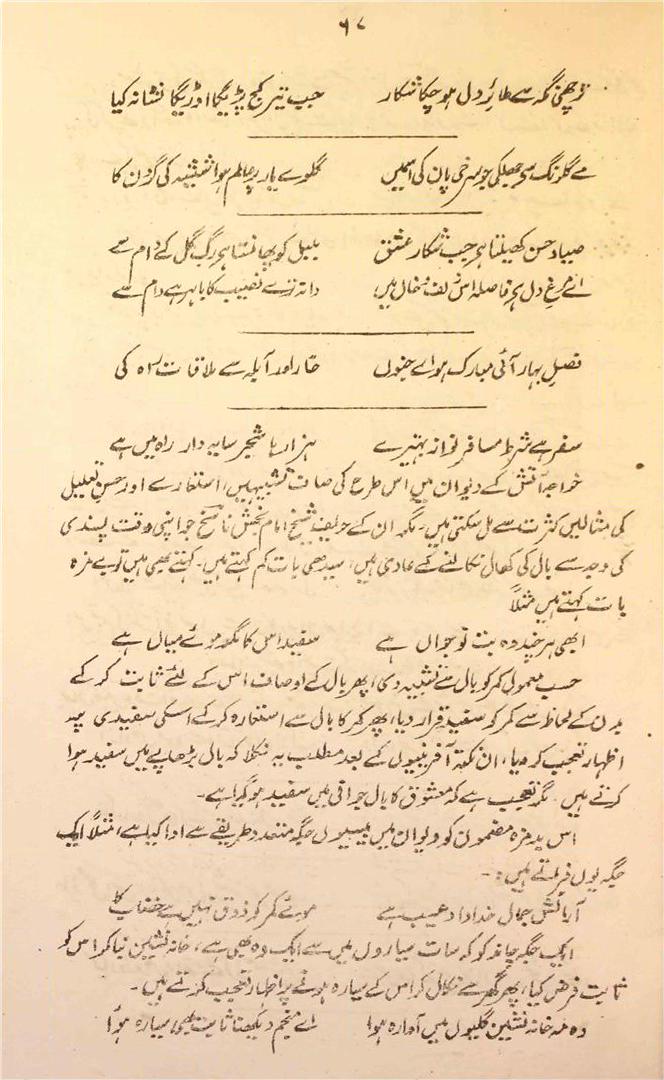 ۶۷
ترچھی نگہ سے طائرِ دل ہو چکا شکار جب تیر کج پڑیگا اڈریگا نشانہ کیا
مے گلرنگ سی جھلکی جو سرخی پان کی اسمیں گلوے یار پر عالم ہوا شیشہ کی گردن کا
صیاد حسن کھیلتا ہر جب شکار عشق بلبل کو پھانستا ہر رگِ گل کے دام سے
اے مرغِ دل ہر فاصلہ اس زلف و خال میں دانہ ترے نصیب کا باہر ہے دام سے
فصلِ بہار آئی مبارک ہو اے جنوں خار اور آبلہ سے ملاقات راہ کی
سفر ہے شرط مسافر نواز بہتیرے ہزار ہا شجر سایہ دار راہ میں ہے
خواجہ آتش کے دیوان میں اس طرح کی صاف تشبیہیں، استعارے اور حسنِ تعلیل
کی مثالیں کثرت سے مل سکتی ہیں۔ مگر ان کے حریف شیخ امام بخش ناسخ جو اپنی دقت پسندی
کی وجہ سے بال کی کھال نکالنے کے عادی ہیں، سیدھی بات کم کہتے ہیں۔ کہتے بھی ہیں تو بے مزہ
بات کہتے ہیں مثلاً
ابھی ہر چند وہ بت نوجواں ہے سفید اس کا مگر موئے میاں ہے
حسب معمول کمر کو بال سے تشبیہ دی، پھر بال کے اوصاف اس کے لئے ثابت کر کے
بدن کے لحاظ سے کمر کو سفید قرار دیا، پھر کمر کا بال سے استعارہ کر کے اسکی سفیدی پر
اظہار تعجب کر دیا، ان نکتہ آفرینیوں کے بعد مطلب یہ نکلا کہ بال بڑھاپے میں سفید ہوا
کرتے ہیں۔ مگر تعجب ہے کہ معشوق کا بال جوانی میں سفید ہو گیا ہے۔
اس بد مزہ مضمون کو دیوان میں بیسیوں جگہ متعدد طریقے سے ادا کیا ہے، مثلاً ایک
جگہ یوں فرماتے ہیں:۔
آرائش جمال خداداد عیب ہے موئے کمر کو ذوق نہیں ہے خضاب کا
ایک جگہ چاند کو کہ سات سیاروں میں سے ایک وہ بھی ہے، خانہ نشین بنا کر اس کو
ثابت فرض کیا، پھر گھر سے نکال کر اس کے سیارہ ہونے پر اظہار تعجب کرتے ہیں۔
وہ مہ خانہ نشین گلیوں میں آوارہ ہوا اے منجم دیکھنا ثابت بھی سیارہ ہوا